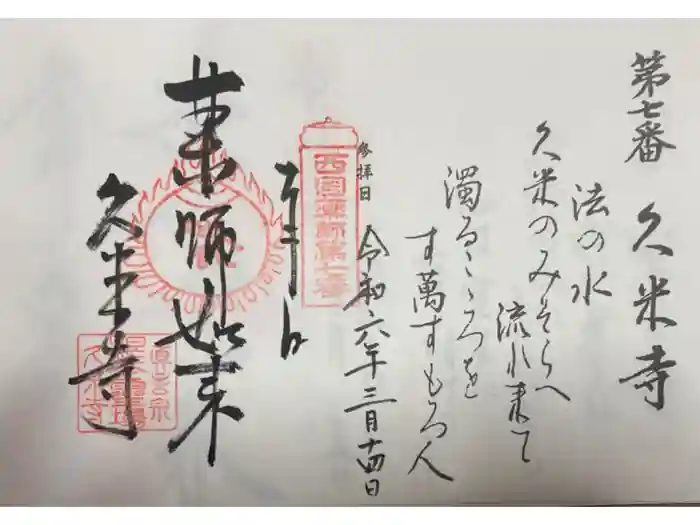 第七番 久米寺
法の水
久米のみそらへ
流れ来て
濁るこゝろを
す萬すもろ人
参拝日 令和六年三月十四日
西国薬師第七番
奉拝
薬師如来
久米寺